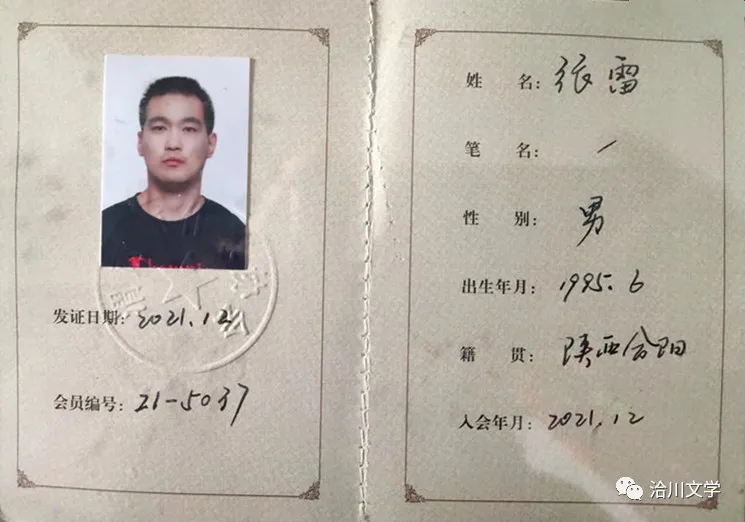 发证日期: 2021.12
会员编号: 21-5037
姓 名: 张雷
笔 名: /
性 别: 男
出生年月: 1995.6
籍 贯: 陕西合阳
入会年月: 2021.12
洽川文学